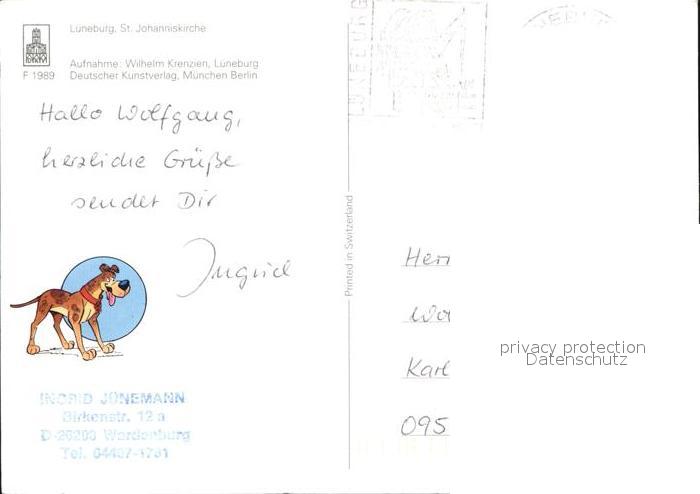 Lüneburg, St. Johanniskirche
Aufnahme: Wilhelm Krenzien, Lüneburg
F 1989 Deutscher Kunstverlag, München Berlin
Hallo Wolfgang,
herzliche Grüße
sendet Dir
Ingrid
INGRID JÜNEMANN
Birkenstr. 12 a
D-26203 Wardenburg
Tel. 04407-1731
Printed in Switzerland
LÜNEBURG
Herr
Karl
095
privacy protection
Datenschutz